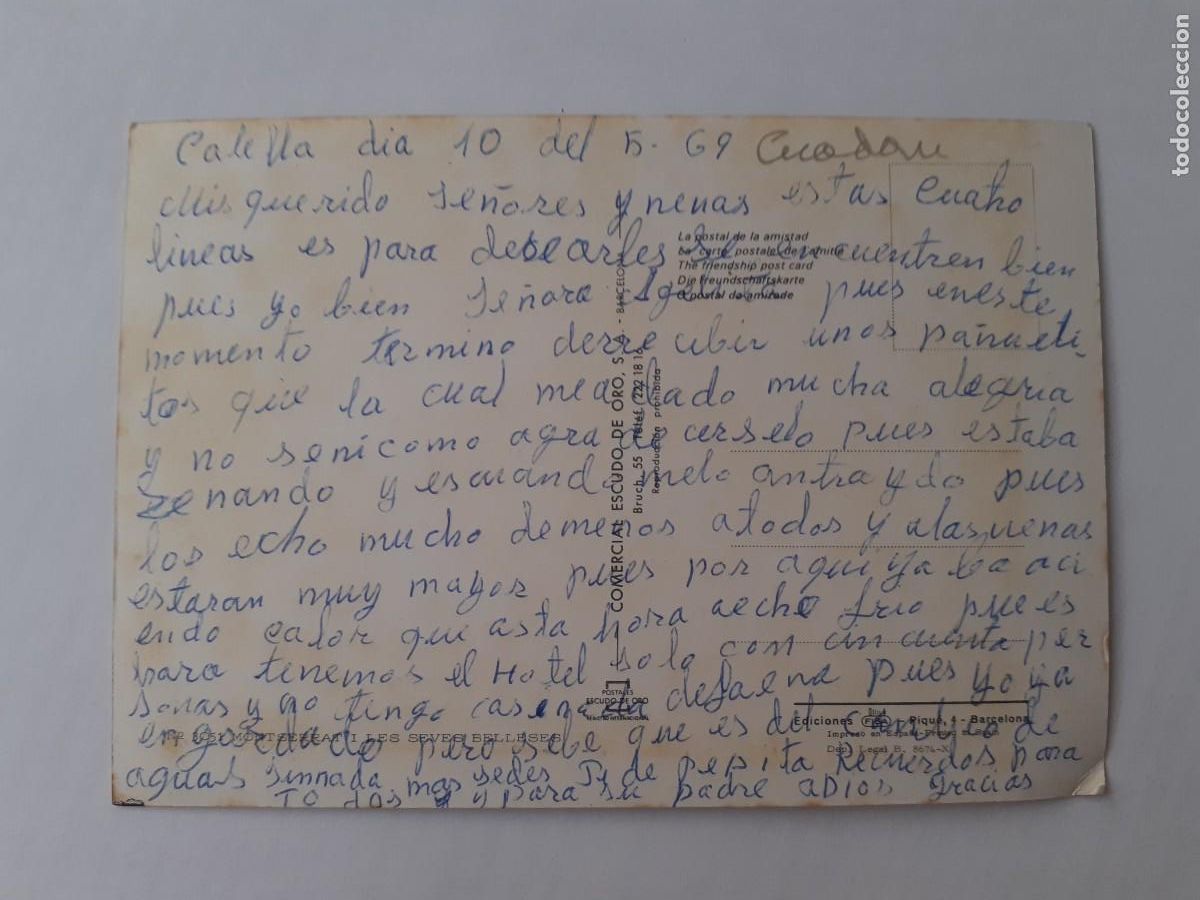 Calella dia 10 del 5. 69
Mis querido señores y nenas estas cuatro
lineas es para desearles se encuentren bien
pues yo bien señora pues eneste
momento termino derrecibir unos pañueli-
tos que la cual mea dado mucha alegria
y no senicomo agradecerselo pues estaba
zenando y esenando melo antraydo pues
los echo mucho demenos atodos y alasnenas
estaran muy mayor pues por aqui ya ba aci
endo calor que asta hora aecho frio pues
tenemos el Hotel solo con cincuenta per
sonas y no tengo casi nada defaena pues yo ya
engordando pero sebe que es del canbio de
aguas sinnada mas sedes Pi de pepita Recuerdos para
TO dos y y para su padre aDios gracias
La postal de la amistad
La carte postale de l'amitié
The friendship post card
Die Freundschaftskarte
O postal da amizade
COMERCIAL ESCUDO DE ORO, S.A. - BARCELONA
Bruch, 55 Teléf. 222 18 16
Reproducción prohibida
POSTALES
ESCUDO DE ORO
Ediciones FISA Piqué, 4 - Barcelona
Impreso en España
Dep. Legal B. 8674-X
MONTSERRAT I LES SEVES BELLESES
todocoleccion